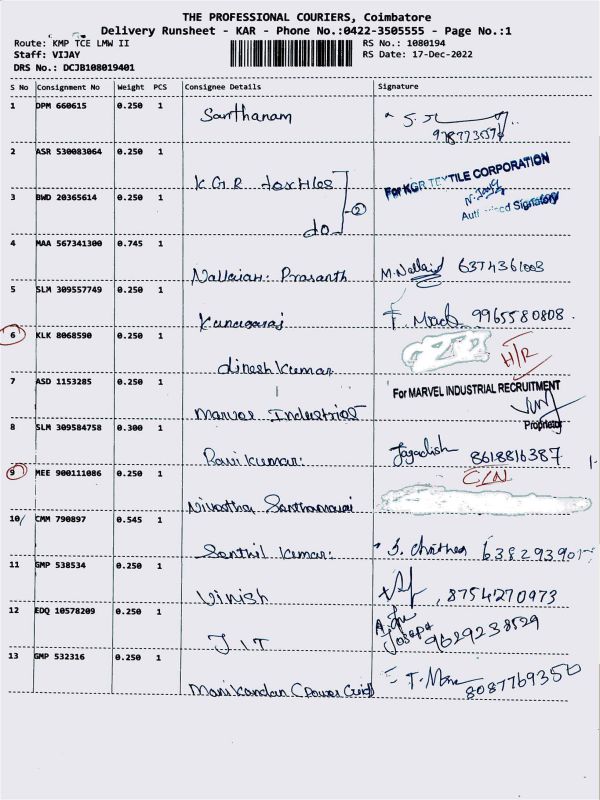 THE PROFESSIONAL COURIERS, Coimbatore
Delivery Runsheet - KAR - Phone No.:0422-3505555 - Page No.:1
Route: KMP TCE LMW II RS No.: 1080194
Staff: VIJAY RS Date: 17-Dec-2022
DRS No.: DCJB108019401
S No Consignment No Weight PCS Consignee Details Signature
1 DPM 660615 0.250 1 Santhanam
2 ASR 530083064 0.250 1 K.G.R textiles For KGR TEXTILE CORPORATION
3 BWD 20365614 0.250 1 do 2 Signatory
4 MAA 567341300 0.745 1 Nallaiah. Prasanth M.Nallaid 6374361003
5 SLM 309557749 0.250 1 Kanagaraj 9965580808.
6 KLK 8068590 0.250 1 dinesh kumar H/R
7 ASD 1153285 0.250 1 Marvel Industrial For MARVEL INDUSTRIAL RECRUITMENT
Proprietor
8 SLM 309584758 0.300 1 Ravi kumar: Jagadish 8618816387
9 MEE 900111086 0.250 1 C/N
10 CMM 790897 0.545 1 Santhil kumar:
11 GMP 538534 0.250 1 Vinish 8754270973
12 EDQ 10578209 0.250 1 J.I.T 9629238529
13 GMP 532316 0.250 1 Manikandan (Power Grid) 8087769350